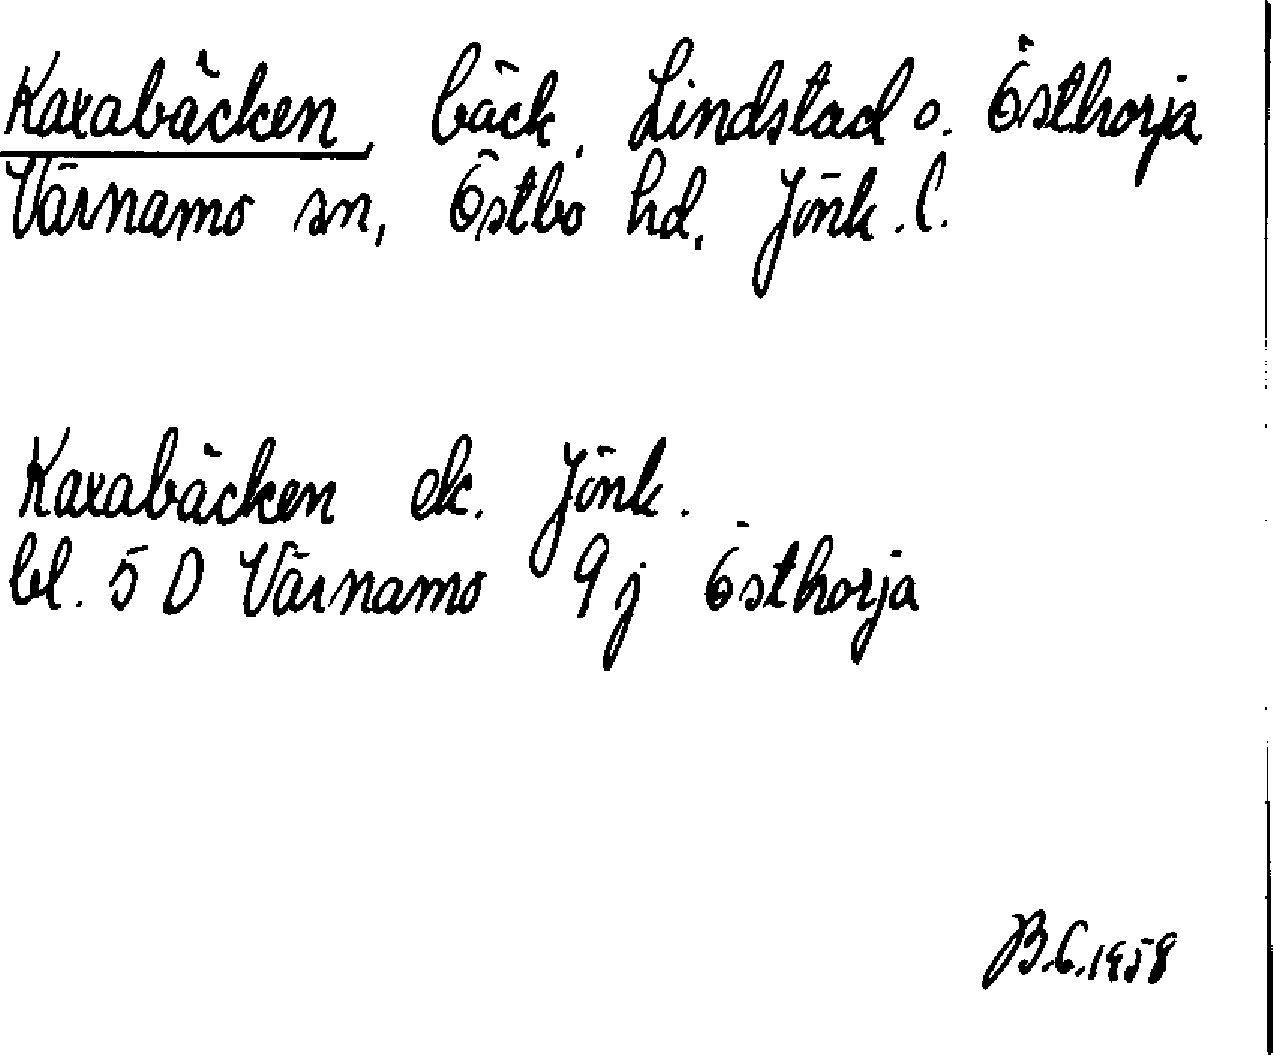 Kaxabäcken, bäck, Lindstad o. Östhorja
Värnamo sn, Östbo hd, Jönk. l.
Kaxabäcken ek. Jönk.
bl. 5 D Värnamo 9 j Östhorja
B.C. 1958